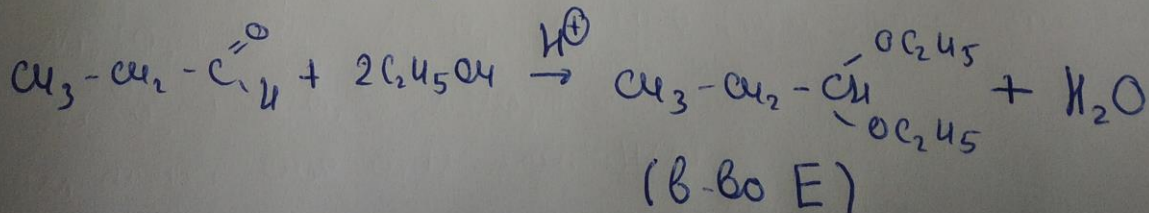 CH₃-CH₂-C(=O)H + 2C₂H₅OH →(H⊕) CH₃-CH₂-CH(OC₂H₅)(OC₂H₅) + H₂O
(в-во E)